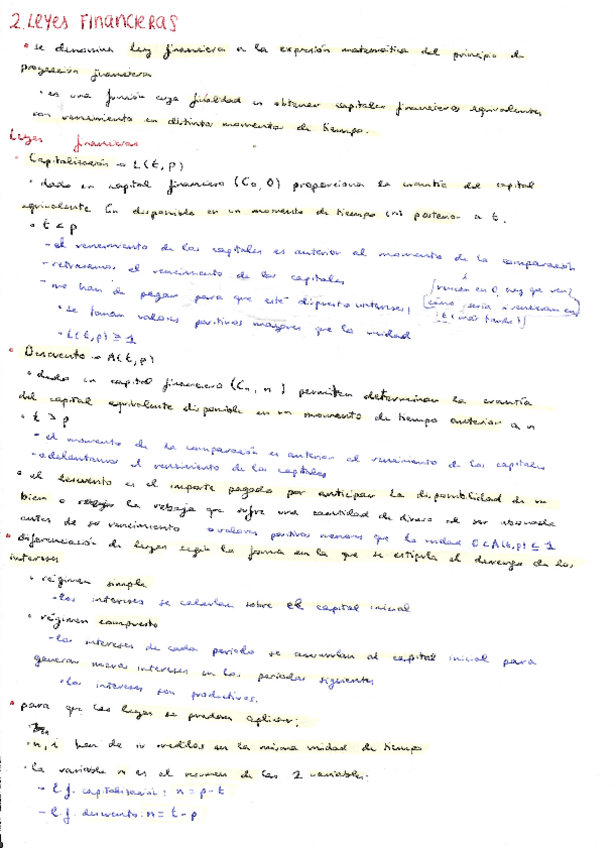 2. Leyes Financieras
• se denomina ley financiera a la expresión matemática del principio de
proyección financiera
• es una función cuya finalidad es obtener capitales financieros equivalentes
con vencimiento en distinto momento de tiempo.
Leyes financieras
• Capitalización → L(t, p)
• dado un capital financiero (C0, 0) proporciona la cuantía del capital
equivalente Cn disponible en un momento de tiempo (n) posterior a t.
• t < p
- el vencimiento de los capitales es anterior al momento de la comparación
- retrasamos el vencimiento de los capitales
- me han de pagar para que esté dispuesto intereses,
• se toman valores positivos mayores que la unidad
- L(t, p) ≥ 1
• Descuento → A(t, p)
• dado un capital financiero (Cn, n) permiten determinar la cuantía
del capital equivalente disponible en un momento de tiempo anterior a n
• t > p
- el momento de la comparación es anterior al vencimiento de los capitales
- adelantamos el vencimiento de los capitales
• el descuento es el importe pagado por anticipar la disponibilidad de un
bien o la rebaja que sufre una cantidad de dinero al ser abonada
antes de su vencimiento → valores positivos menores que la unidad 0 < A(t, p) ≤ 1
• Diferenciación de leyes según la forma en la que se estipula el devengo de los
intereses
• régimen simple
- los intereses se calculan sobre el capital inicial
• régimen compuesto
- los intereses de cada periodo se acumulan al capital inicial para
generar nuevos intereses en los periodos siguientes
• los intereses son productivos.
• para que las leyes se puedan aplicar:
• n, i han de ir medidos en la misma unidad de tiempo
• la variable n es el resumen de las 2 variables.
- l.f. capitalización: n = p - t
- l.f. descuento: n = t - p